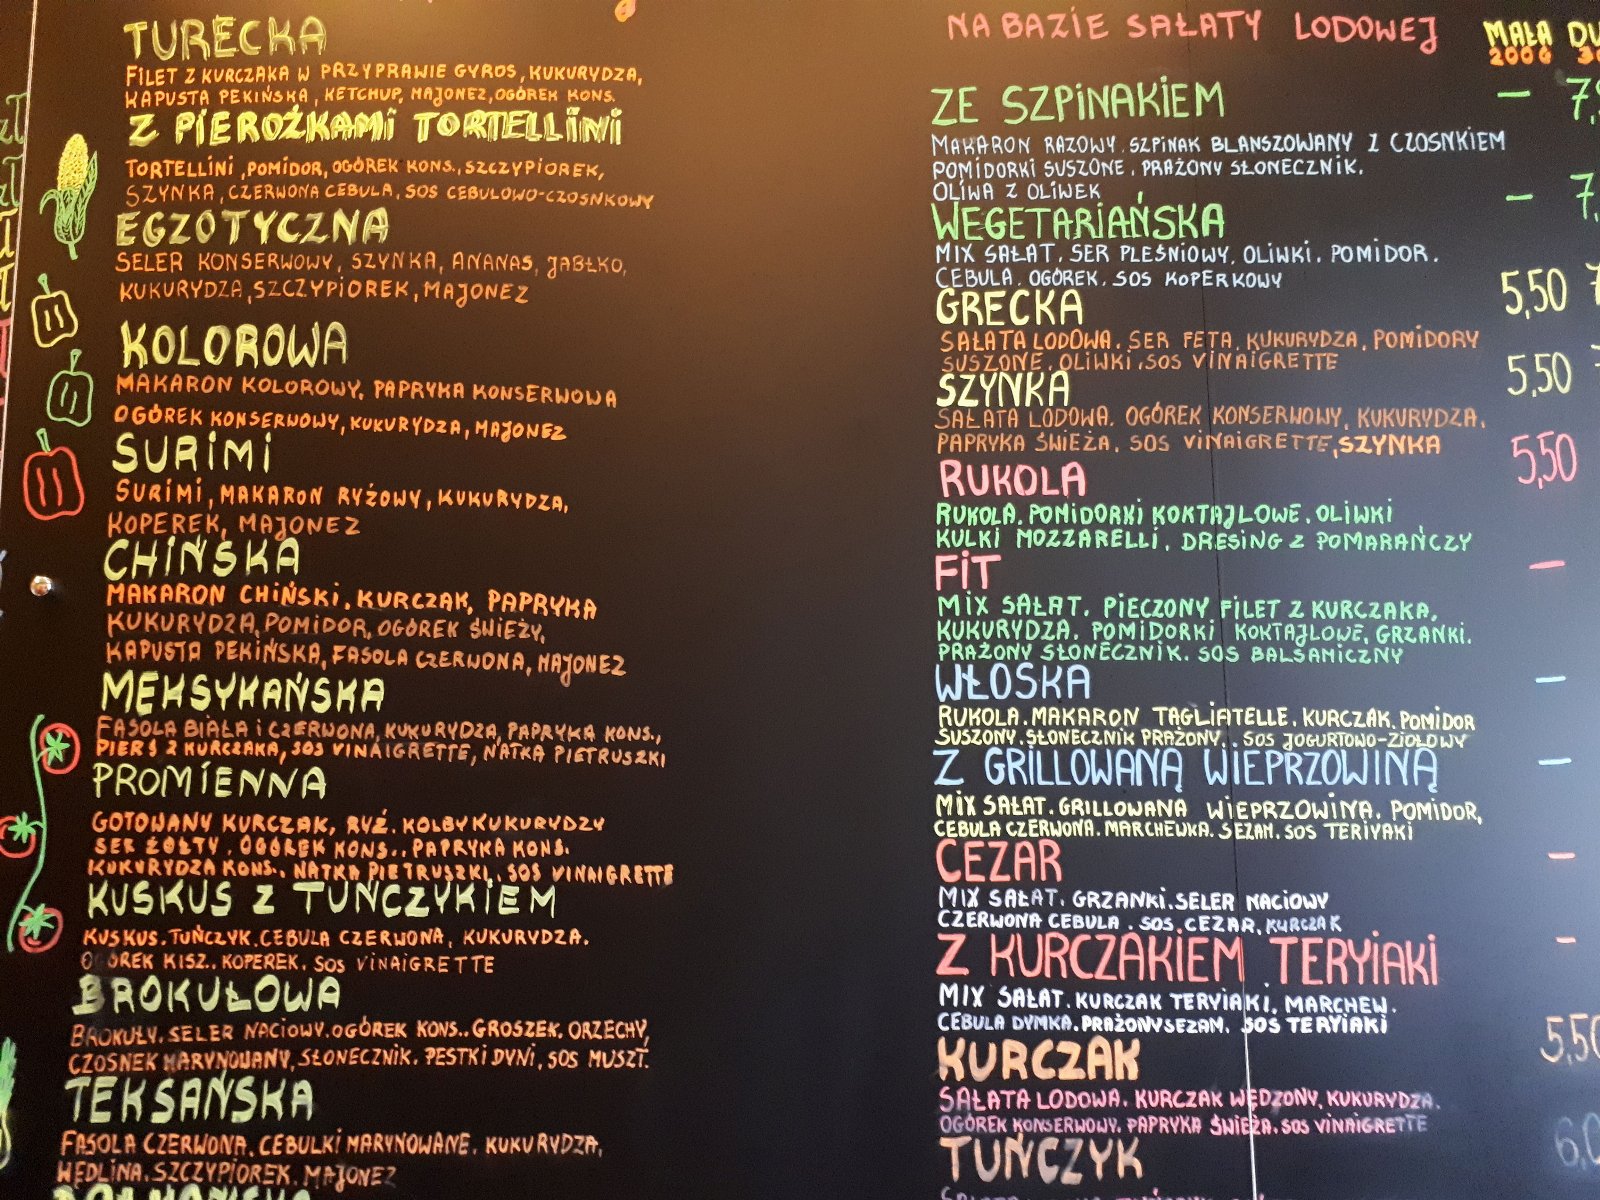 TURECKA
FILET Z KURCZAKA W PRZYPRAWIE GYROS, KUKURYDZA,
KAPUSTA PEKIŃSKA, KETCHUP, MAJONEZ, OGÓREK KONS.
Z PIEROŻKAMI TORTELLINI
TORTELLINI, POMIDOR, OGÓREK KONS., SZCZYPIOREK,
SZYNKA, CZERWONA CEBULA, SOS CEBULOWO-CZOSNKOWY
EGZOTYCZNA
SELER KONSERWOWY, SZYNKA, ANANAS, JABŁKO,
KUKURYDZA, SZCZYPIOREK, MAJONEZ
KOLOROWA
MAKARON KOLOROWY, PAPRYKA KONSERWOWA
OGÓREK KONSERWOWY, KUKURYDZA, MAJONEZ
SURIMI
SURIMI, MAKARON RYŻOWY, KUKURYDZA,
KOPEREK, MAJONEZ
CHIŃSKA
MAKARON CHIŃSKI, KURCZAK, PAPRYKA
KUKURYDZA, POMIDOR, OGÓREK ŚWIEŻY,
KAPUSTA PEKIŃSKA, FASOLA CZERWONA, MAJONEZ
MEKSYKAŃSKA
FASOLA BIAŁA I CZERWONA, KUKURYDZA, PAPRYKA KONS.,
PIERŚ Z KURCZAKA, SOS VINAIGRETTE, NATKA PIETRUSZKI
PROMIENNA
GOTOWANY KURCZAK, RYŻ. KOLBY KUKURYDZY
SER ŻÓŁTY. OGÓREK KONS.. PAPRYKA KONS.
KUKURYDZA KONS.. NATKA PIETRUSZKI. SOS VINAIGRETTE
KUSKUS Z TUŃCZYKIEM
KUSKUS. TUŃCZYK. CEBULA CZERWONA, KUKURYDZA.
OGÓREK KISZ.. KOPEREK. SOS VINAIGRETTE
BROKUŁOWA
BROKUŁY. SELER NACIOWY. OGÓREK KONS.. GROSZEK. ORZECHY,
CZOSNEK MARYNOWANY, SŁONECZNIK. PESTKI DYNI, SOS MUSZT.
TEKSAŃSKA
FASOLA CZERWONA. CEBULKI MARYNOWANE. KUKURYDZA,
WĘDLINA. SZCZYPIOREK. MAJONEZ
NA BAZIE SAŁATY LODOWEJ
MAŁA
200G
ZE SZPINAKIEM – 7,
MAKARON RAZOWY. SZPINAK BLANSZOWANY Z CZOSNKIEM
POMIDORKI SUSZONE. PRAŻONY SŁONECZNIK.
OLIWA Z OLIWEK
WEGETARIAŃSKA – 7,
MIX SAŁAT. SER PLEŚNIOWY. OLIWKI. POMIDOR.
CEBULA. OGÓREK. SOS KOPERKOWY
GRECKA 5,50
SAŁATA LODOWA. SER FETA. KUKURYDZA. POMIDORY
SUSZONE. OLIWKI. SOS VINAIGRETTE
SZYNKA 5,50
SAŁATA LODOWA. OGÓREK KONSERWOWY, KUKURYDZA.
PAPRYKA ŚWIEŻA. SOS VINAIGRETTE, SZYNKA
RUKOLA 5,50
RUKOLA. POMIDORKI KOKTAJLOWE. OLIWKI
KULKI MOZZARELLI, DRESING Z POMARAŃCZY
FIT –
MIX SAŁAT. PIECZONY FILET Z KURCZAKA.
KUKURYDZA. POMIDORKI KOKTAJLOWE, GRZANKI.
PRAŻONY SŁONECZNIK. SOS BALSAMICZNY
WŁOSKA –
RUKOLA. MAKARON TAGLIATELLE. KURCZAK. POMIDOR
SUSZONY. SŁONECZNIK PRAŻONY.. SOS JOGURTOWO-ZIOŁOWY
Z GRILLOWANĄ WIEPRZOWINĄ –
MIX SAŁAT. GRILLOWANA WIEPRZOWINA. POMIDOR,
CEBULA CZERWONA. MARCHEWKA. SEZAM. SOS TERIYAKI
CEZAR –
MIX SAŁAT. GRZANKI. SELER NACIOWY
CZERWONA CEBULA. SOS CEZAR, KURCZAK
Z KURCZAKIEM TERYIAKI –
MIX SAŁAT. KURCZAK TERYIAKI, MARCHEW.
CEBULA DYMKA. PRAŻONY SEZAM. SOS TERYIAKI
KURCZAK 5,50
SAŁATA LODOWA. KURCZAK WĘDZONY, KUKURYDZA.
OGÓREK KONSERWOWY. PAPRYKA ŚWIEŻA. SOS VINAIGRETTE
TUŃCZYK 6,0